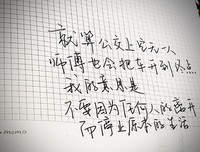 就算公交上空无一人
师傅也会把车开到终点
我的意思是
不要因为任何人的离开
而停止原本的生活